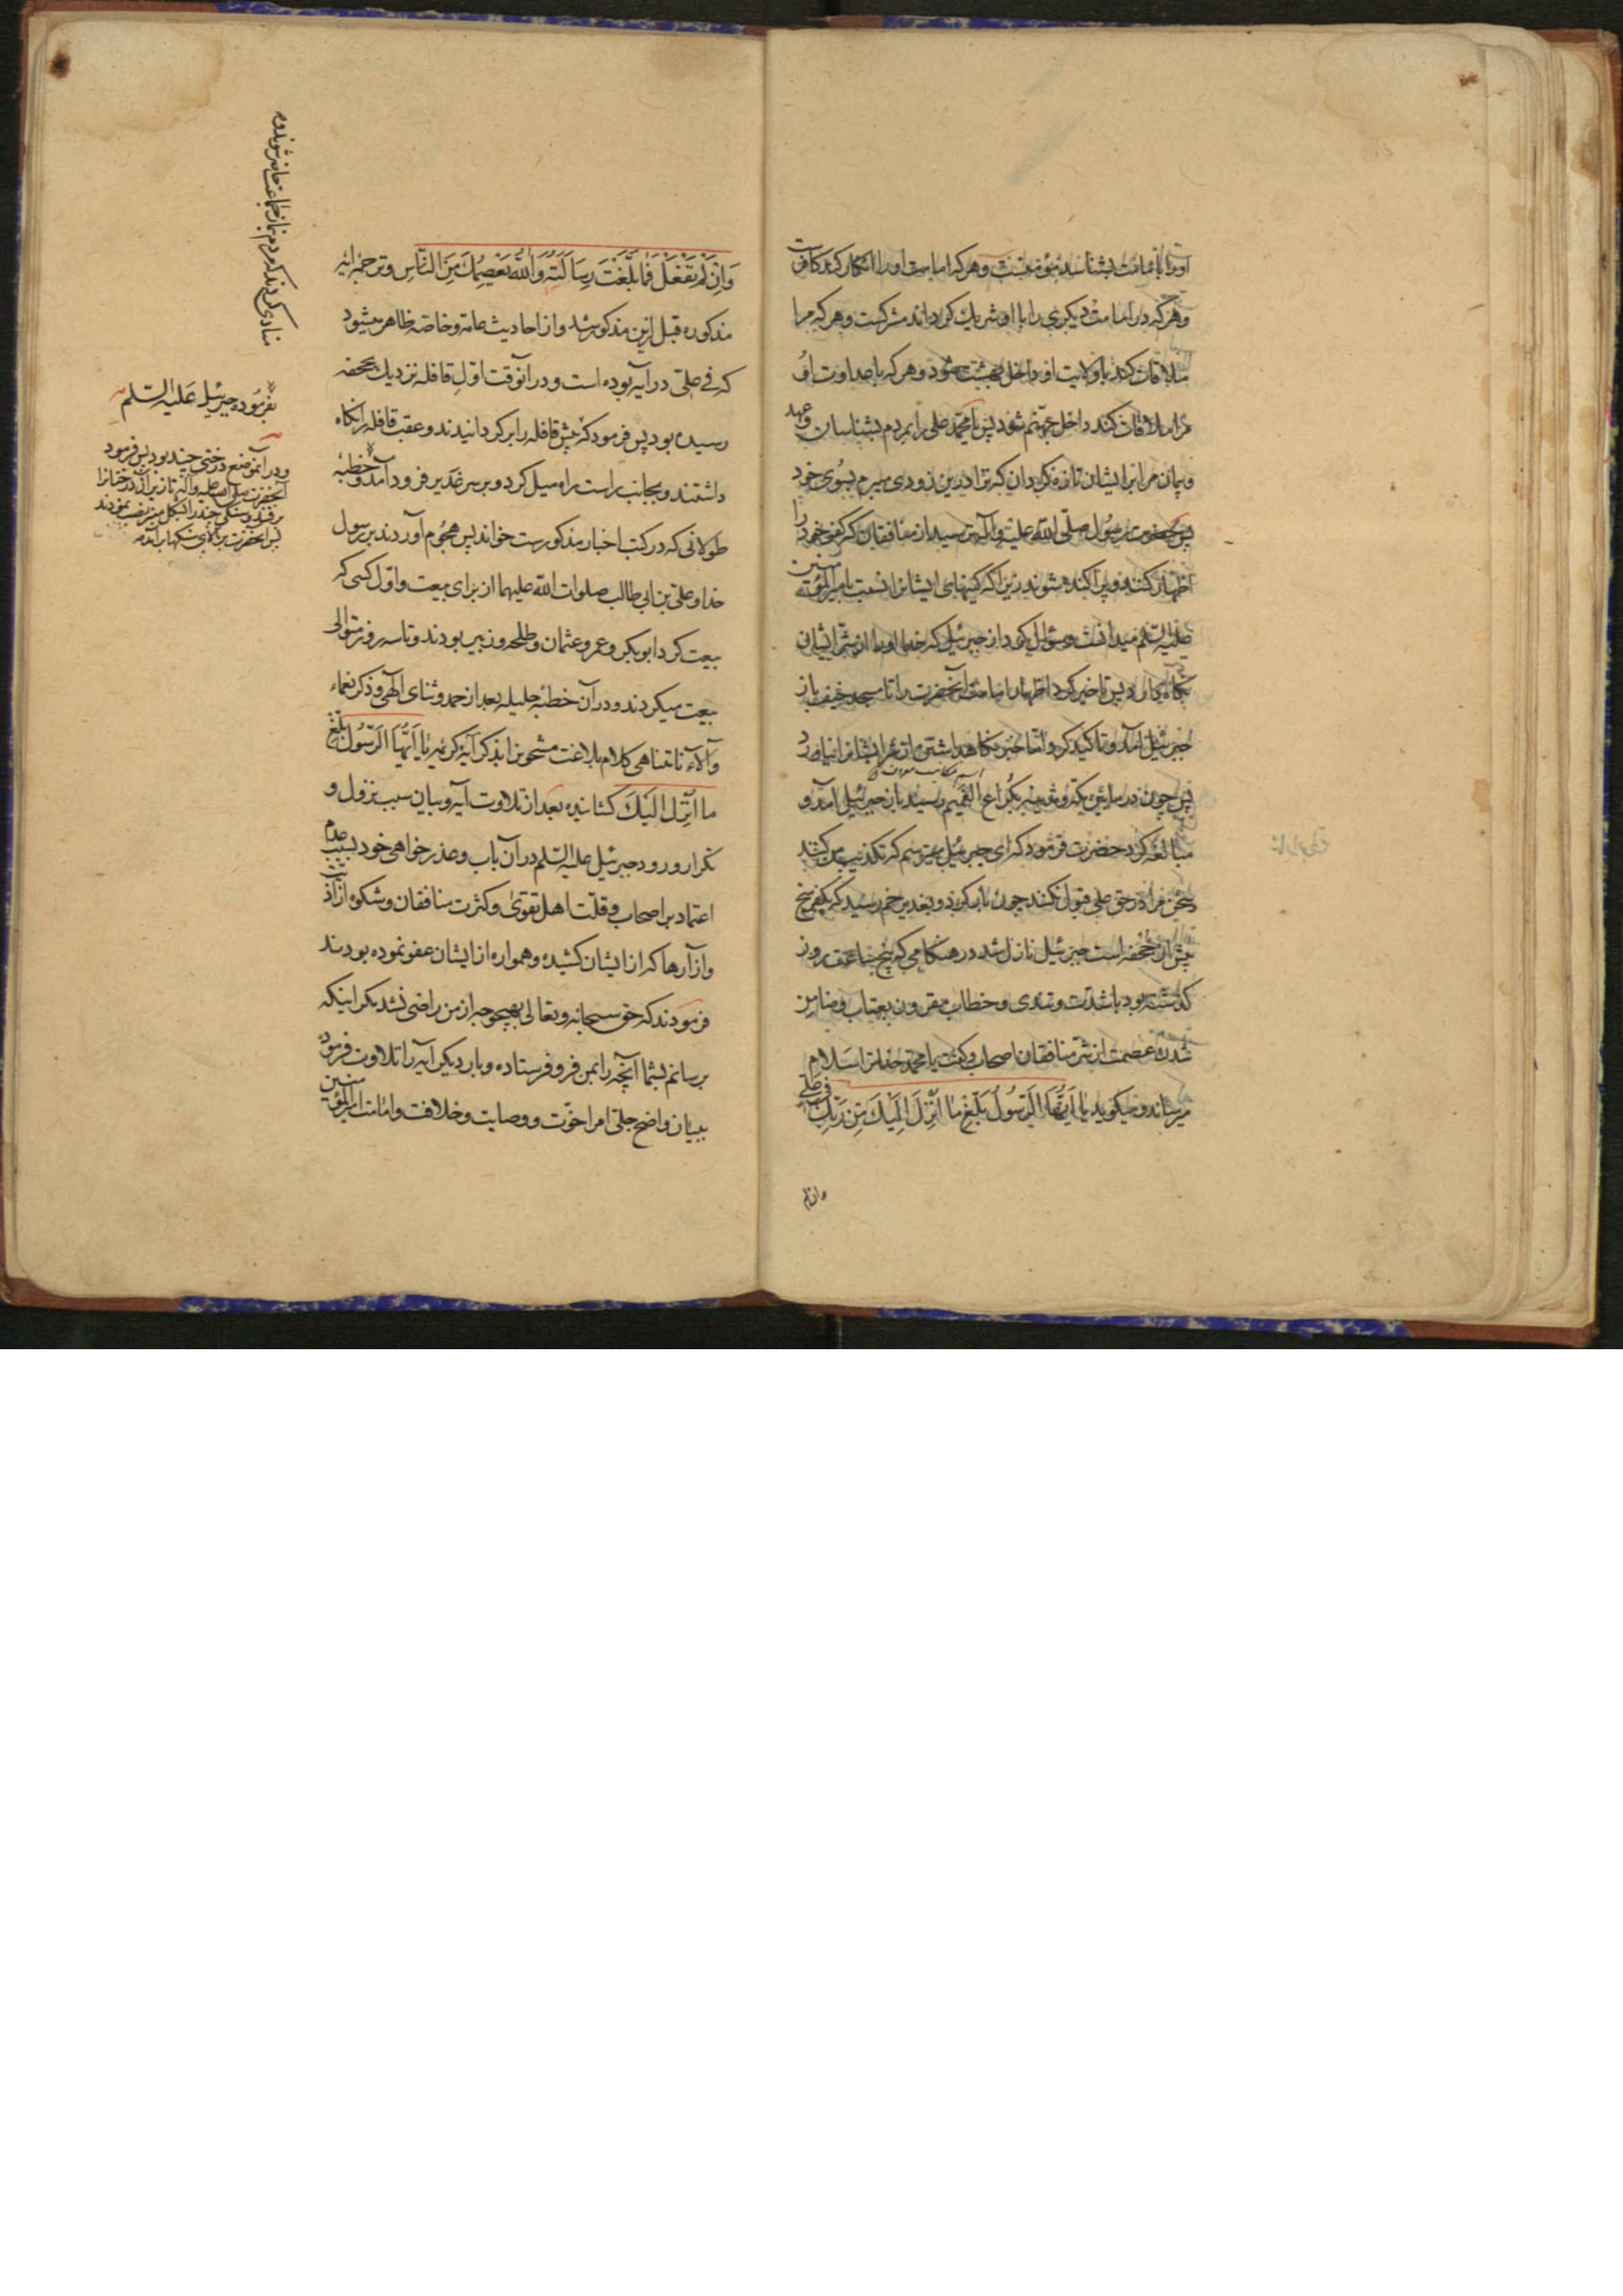 اورا بامامت بشناسد مؤمنست و هرکه امامت اورا انکار کند کافرست
و هرکه در امامت دیکری را با او شریك کرداند مشرکست و هرکه مرا
ملاقات کند با ولایت او داخل بهشت شود و هرکه با عداوت او
مرا ملاقات کند داخل جهنّم شود پس یا محمّد علی را بمردم بشناسان و عهد
و پیمان مرا بر ایشان تازه کردان که ترا درین زودی میبرم بسوی خود
پس حضرت رسول صلّی الله علیه و آله ترسید از منافقان که کفر خود را
اظهار کنند و پراکنده شوند زیرا که کینهای ایشانرا نسبت بامیرالمؤمنین
علیه السّلم میدانست و سؤال کرد از جبرئیل که خدا اورا از شرّ ایشان
نکاه دارد پس تاخیر کرد اظهار امامت آنحضرت را تا مسجد خیف باز
جبرئیل آمد و تاکید کرد و امّا خبر نکاهداشتن از شرّ ایشانرا نیاورد
پس چون در مابین مکّه و مدینه بکُراع الغمیم رسید باز جبرئیل آمد و
مبالغه کرد حضرت فرمود که ای جبرئیل میترسم که تکذیب من کنند
و سخن مرا در حق علی قبول نکنند چون بار کرد و بغدیر خم رسید که یکفرسخ
پیش از جحفه است جبرئیل نازل شد در هنکامی که پنج ساعت از روز
کذشته بود با شدّت و تندی و خطاب مقرون بعتاب و ضامن
شدن عصمت از شرّ منافقان اصحاب و کفت یا محمّد خدا ترا سلام
میرساند و میکوید یا اَیُّهَا الرَسُولُ بَلِّغْ ما اُنْزِلَ اِلَیكَ مِن رَبِّكَ فی علی
وان لم
وَاِن لَمْ تَفْعَلْ فَما بَلَّغْتَ رِسالَتَهُ وَاللهُ یَعْصِمُكَ مِنَ النّاسِ و ترجمه آیه
مذکوره قبل ازین مذکور شد و از احادیث عامه و خاصه ظاهر میشود
که فی علّی در آیه بوده است و در آنوقت اوّل قافله نزدیك بجحفه
رسیده بود پس فرمود که پیش قافله را بر کردانیدند و عقب قافله را نکاه
داشتند و بجانب راست راه میل کرد و بر سر غدیر فرود آمد و خطبه
طولانی که در کتب اخبار مذکورست خواند پس هجوم آوردند بر رسول
خدا و علّی بن ابی طالب صلوات الله علیهما از برای بیعت و اوّل کسی که
بیعت کرد ابوبکر و عمر و عثمان و طلحه و زبیر بودند و تا سه روز متوالی
بیعت میکردند و در آن خطبه جلیله بعد از حمد و ثنای الهی و ذکر نعماء
و آلاء نامتناهی کلام بلاغت مشحونرا بذکر آیه کریمه یا اَیُّهَا الرَسُولُ بَلِّغْ
ما اُنْزِلَ اِلَیْكَ کشانیده بعد از تلاوت آیه و بیان سبب نزول و
تکرار ورود جبرئیل علیه السّلم در آن باب و عذر خواهی خود بسبب عدم
اعتماد بر اصحاب و قلّت اهل تقوی و کثرت منافقان و شکوه از اذیت
و آزارها که از ایشان کشیده و همواره از ایشان عفو نموده بودند
فرمودند که حق سبحانه و تعالی بهیچوجه از من راضی نشد مکر اینکه
برسانم بشما آنچه را بمن فرو فرستاده و بار دیکر آیه را تلاوت فرمود
ببیان واضح جلّی امر اخوّت و وصایت و خلافت و امامت امیرالمؤمنین
بفرموده جبرئیل عَلیه السّلم
و در آنموضع درختی چند بود پس فرمود
آنحضرت صلی الله علیه و آله تا زیر آن درختانرا
برفتند و سنکی چند را بشکل منبر نصب نمودند
پس آنحضرت بر بالای سنکها بر آمد
منادی کردند که مردم بنماز جماعت حاضر شوند